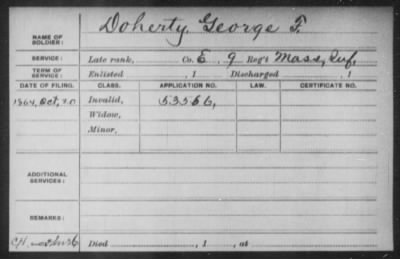 Doherty, George F.
NAME OF SOLDIER:
SERVICE: Late rank, Co. E, 9 Reg't Mass, Inf.
TERM OF SERVICE: Enlisted , 1 Discharged , 1
DATE OF FILING. CLASS. APPLICATION NO. LAW. CERTIFICATE NO.
1864, Oct, 20 Invalid, 53556,
Widow,
Minor,
ADDITIONAL SERVICES:
REMARKS:
Died , 1 , at